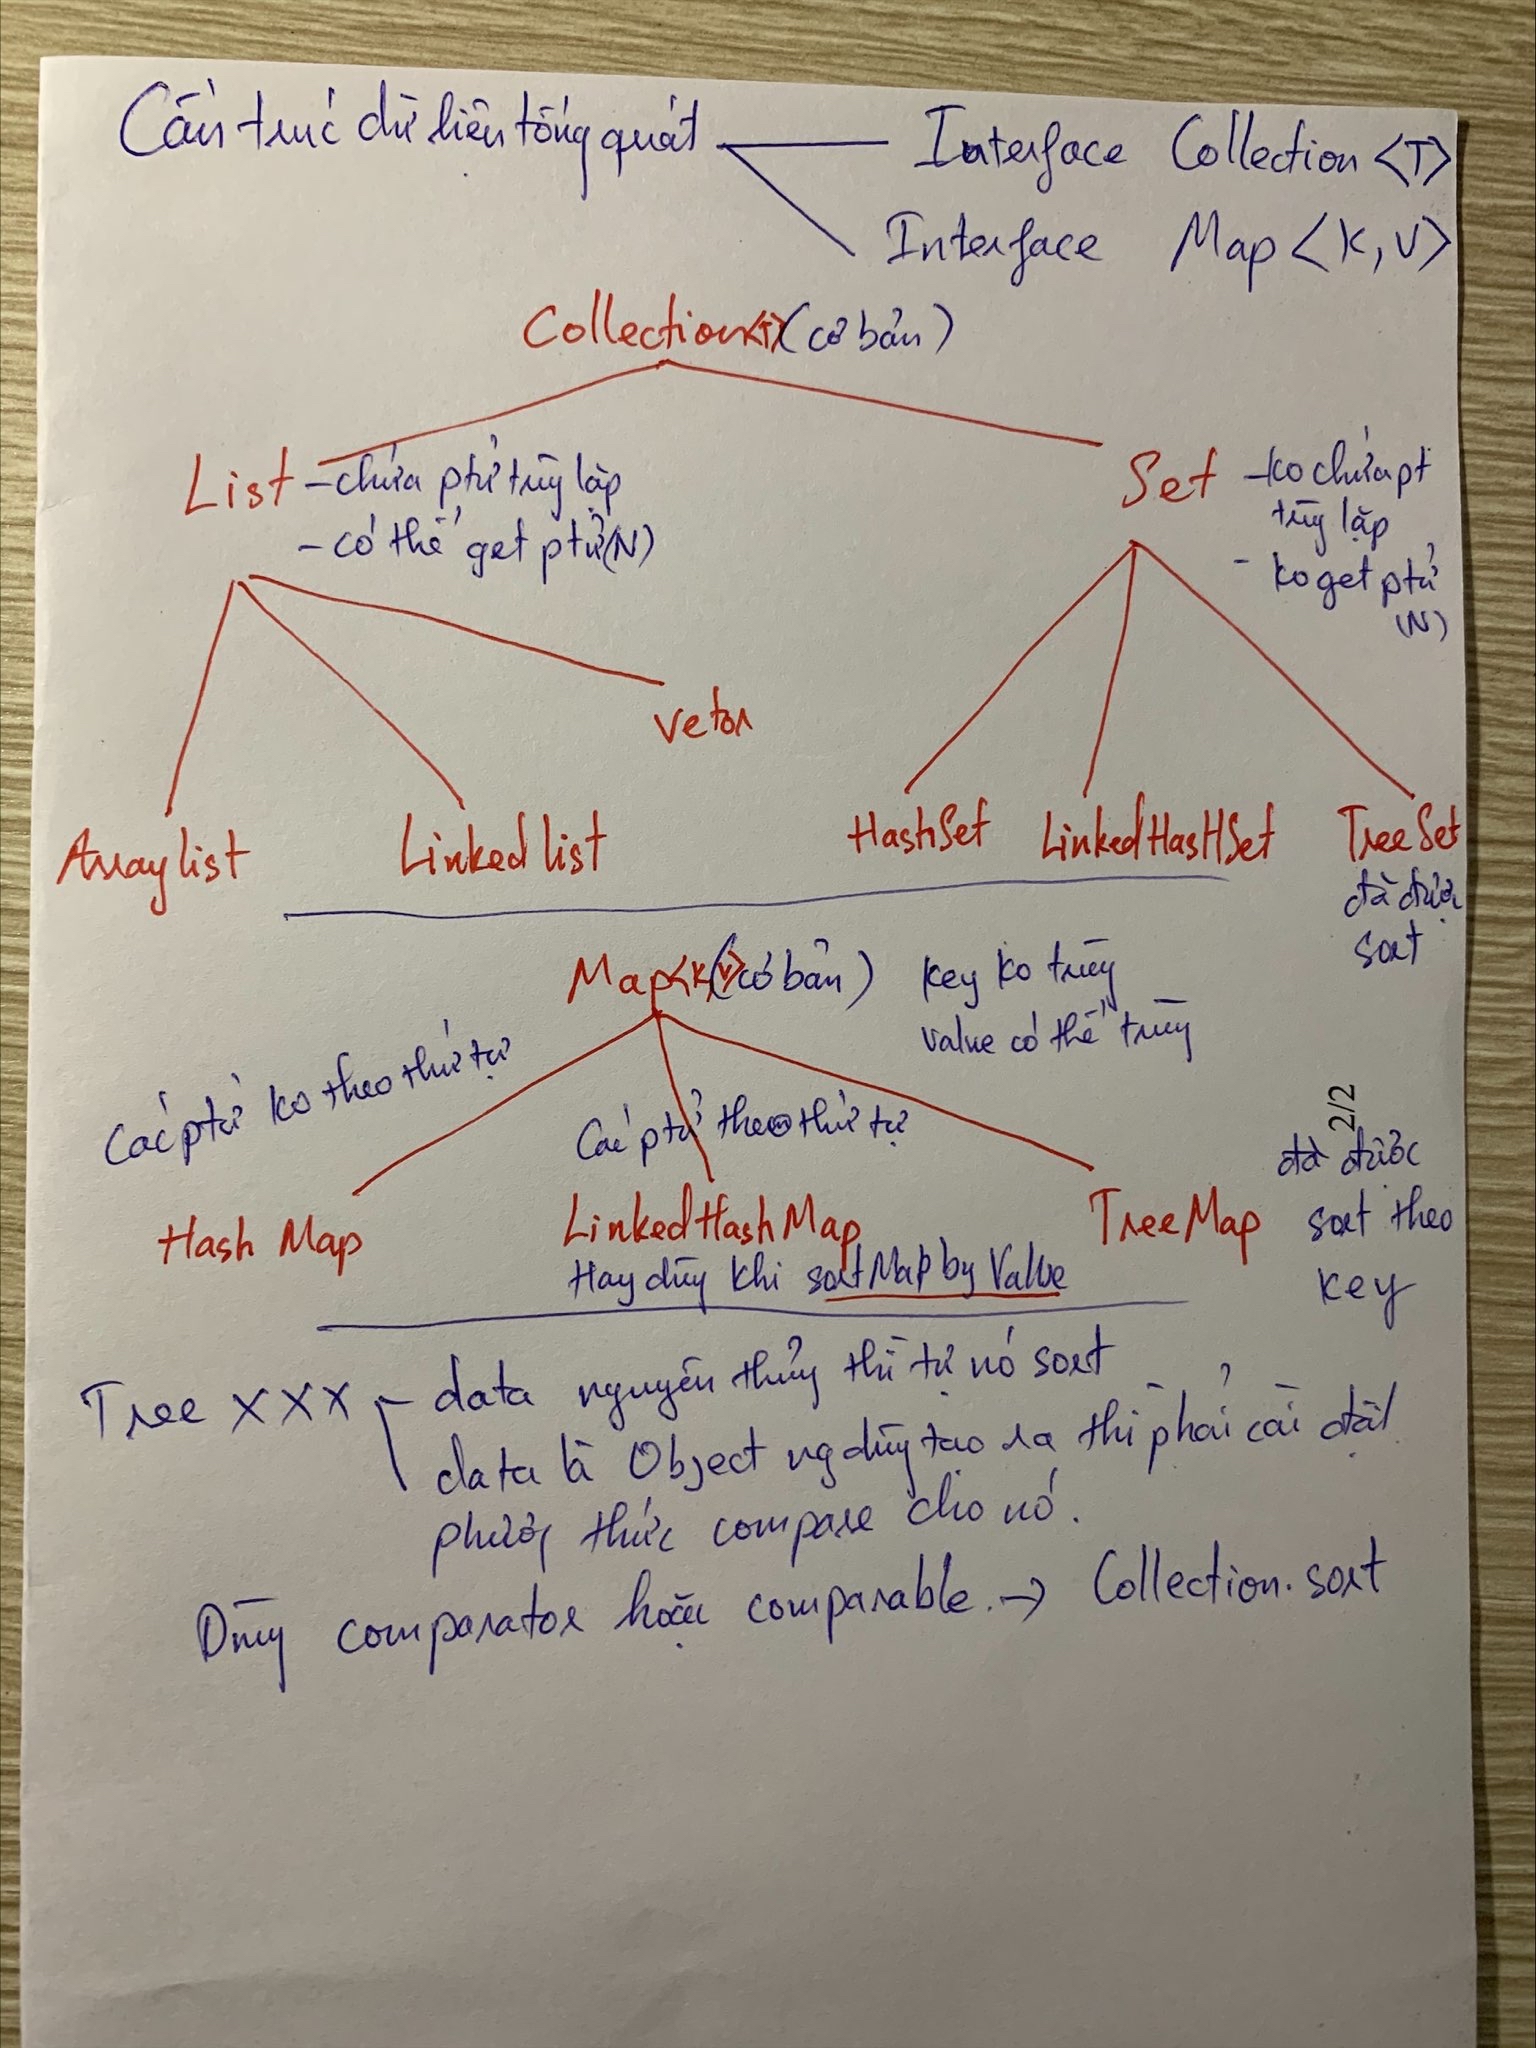 Cấu trúc dữ liệu tổng quát
Interface Collection <T>
Interface Map <K, V>
Collection<T> (cơ bản)
List
- chứa ptử trùg lặp
- có thể get ptử(N)
Set
- ko chứa pt
trùg lặp
- ko get ptử
(N)
Vetor
Arraylist
Linked list
HashSet
LinkedHasHSet
TreeSet
đã được
sort
Map<K,V> (cơ bản)
key ko trùg
value có thể trùg
Các ptử ko theo thứ tự
Các ptử theo thứ tự
2/2
Hash Map
LinkedHashMap
Hay dùg khi sortMap by Value
TreeMap
đã được
sort theo
key
Tree XXX
data nguyên thủy thì tự nó sort
data là Object ng dùg tạo ra thì phải cài đặt
phươg thức compare cho nó.
Dùg comparator hoặc comparable. → Collection.sort